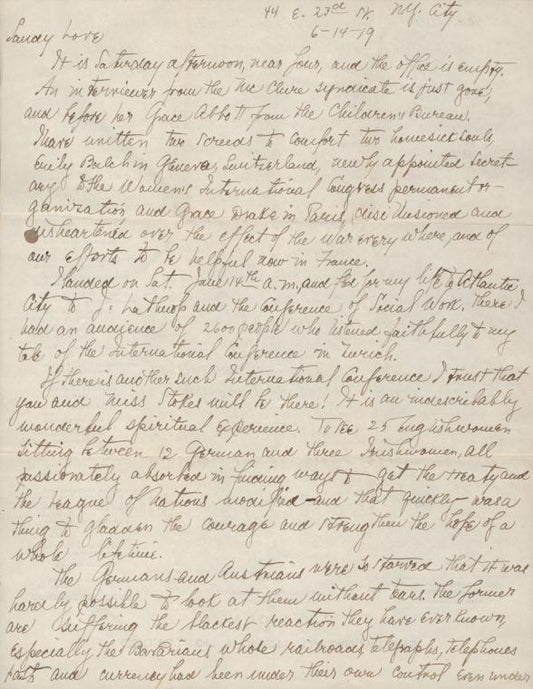 44 E. 23rd St. N.Y. City
6-14-19
Sandy Love
It is Saturday afternoon, near four, and the office is empty.
An interviewer from the McClure syndicate is just gone,
and before her Grace Abbott from the Children's Bureau.
I have written two screeds to comfort two homesick souls,
Emily Balch in Geneva, Switzerland, newly appointed secret-
ary to the Women's International Congress permanent or-
ganization and Grace Drake in Paris, disillusioned and
disheartened over the effect of the war every where, and of
our efforts to be helpful now in France.
I landed on Sat. June 14th a.m. and fled for my life to Atlantic
City to J. Lathrop and the Conference of Social Work. There I
had an audience of 2600 people who listened faithfully to my
tale of the International Conference in Zurich.
If there is another such International Conference I trust that
you and Miss Stokes will be there! It is an indescribably
wonderful spiritual experience. To see 25 Englishwomen
sitting between 12 German and three Irishwomen, all
passionately absorbed in finding ways to get the treaty and
the League of Nations modified - and that quickly - was a
thing to gladden the courage and strengthen the hope of a
whole lifetime.
The Germans and Austrians were so starved that it was
hardly possible to look at them without tears. The former
are suffering the blackest reaction they have ever known,
Especially the Bavarians whose railroads, telegraphs, telephones
and currency had been under their own control even under